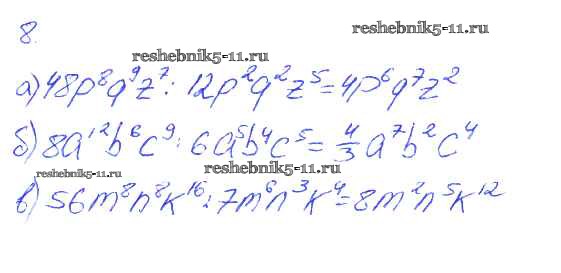 8.
reshebnik5-11.ru
reshebnik5-11.ru
а) 48p⁸q⁹z⁷ : 12p²q²z⁵ = 4p⁶q⁷z²
б) 8a¹²b⁶c⁹ : 6a⁵b⁴c⁵ = 4/3 a⁷b²c⁴
reshebnik5-11.ru
в) 56m⁸n⁸k¹⁶ : 7m⁶n³k⁴ = 8m²n⁵k¹²